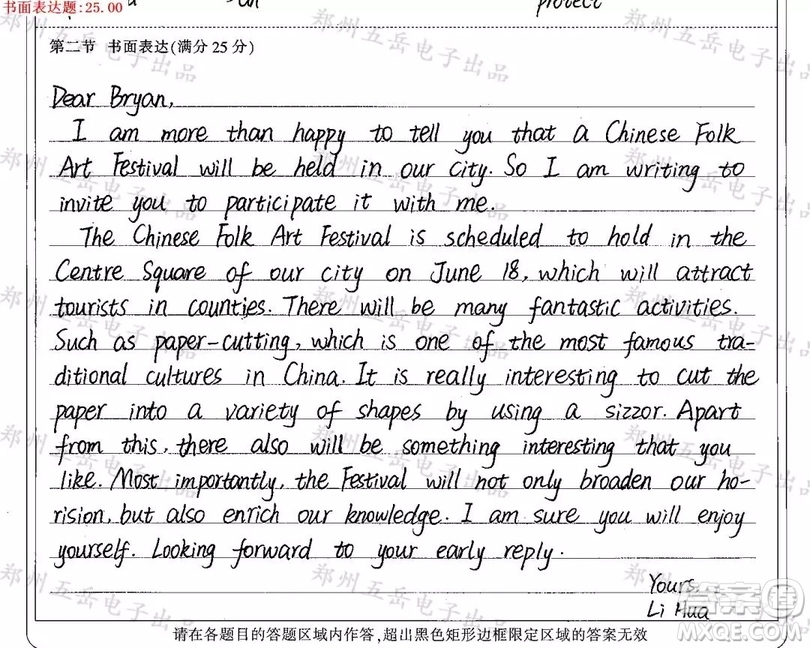 书面表达题:25.00
protect
第二节 书面表达(满分25分)
Dear Bryan,
I am more than happy to tell you that a Chinese Folk
Art Festival will be held in our city. So I am writing to
invite you to participate it with me.
The Chinese Folk Art Festival is scheduled to hold in the
Centre Square of our city on June 18, which will attract
tourists in counties. There will be many fantastic activities.
Such as paper-cutting, which is one of the most famous tra-
ditional cultures in China. It is really interesting to cut the
paper into a variety of shapes by using a sizzor. Apart
from this, there also will be something interesting that you
like. Most importantly, the Festival will not only broaden our ho-
rision, but also enrich our knowledge. I am sure you will enjoy
yourself. Looking forward to your early reply.
Yours.
Li Hua
请在各题目的答题区域内作答,超出黑色矩形边框限定区域的答案无效
郑州五岳电子出品
答案圈
MXQE.COM